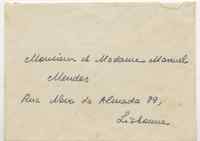 Monsieur & Madame Manuel
Mendes
Rua Nova do Almada 99,
Lisbonne